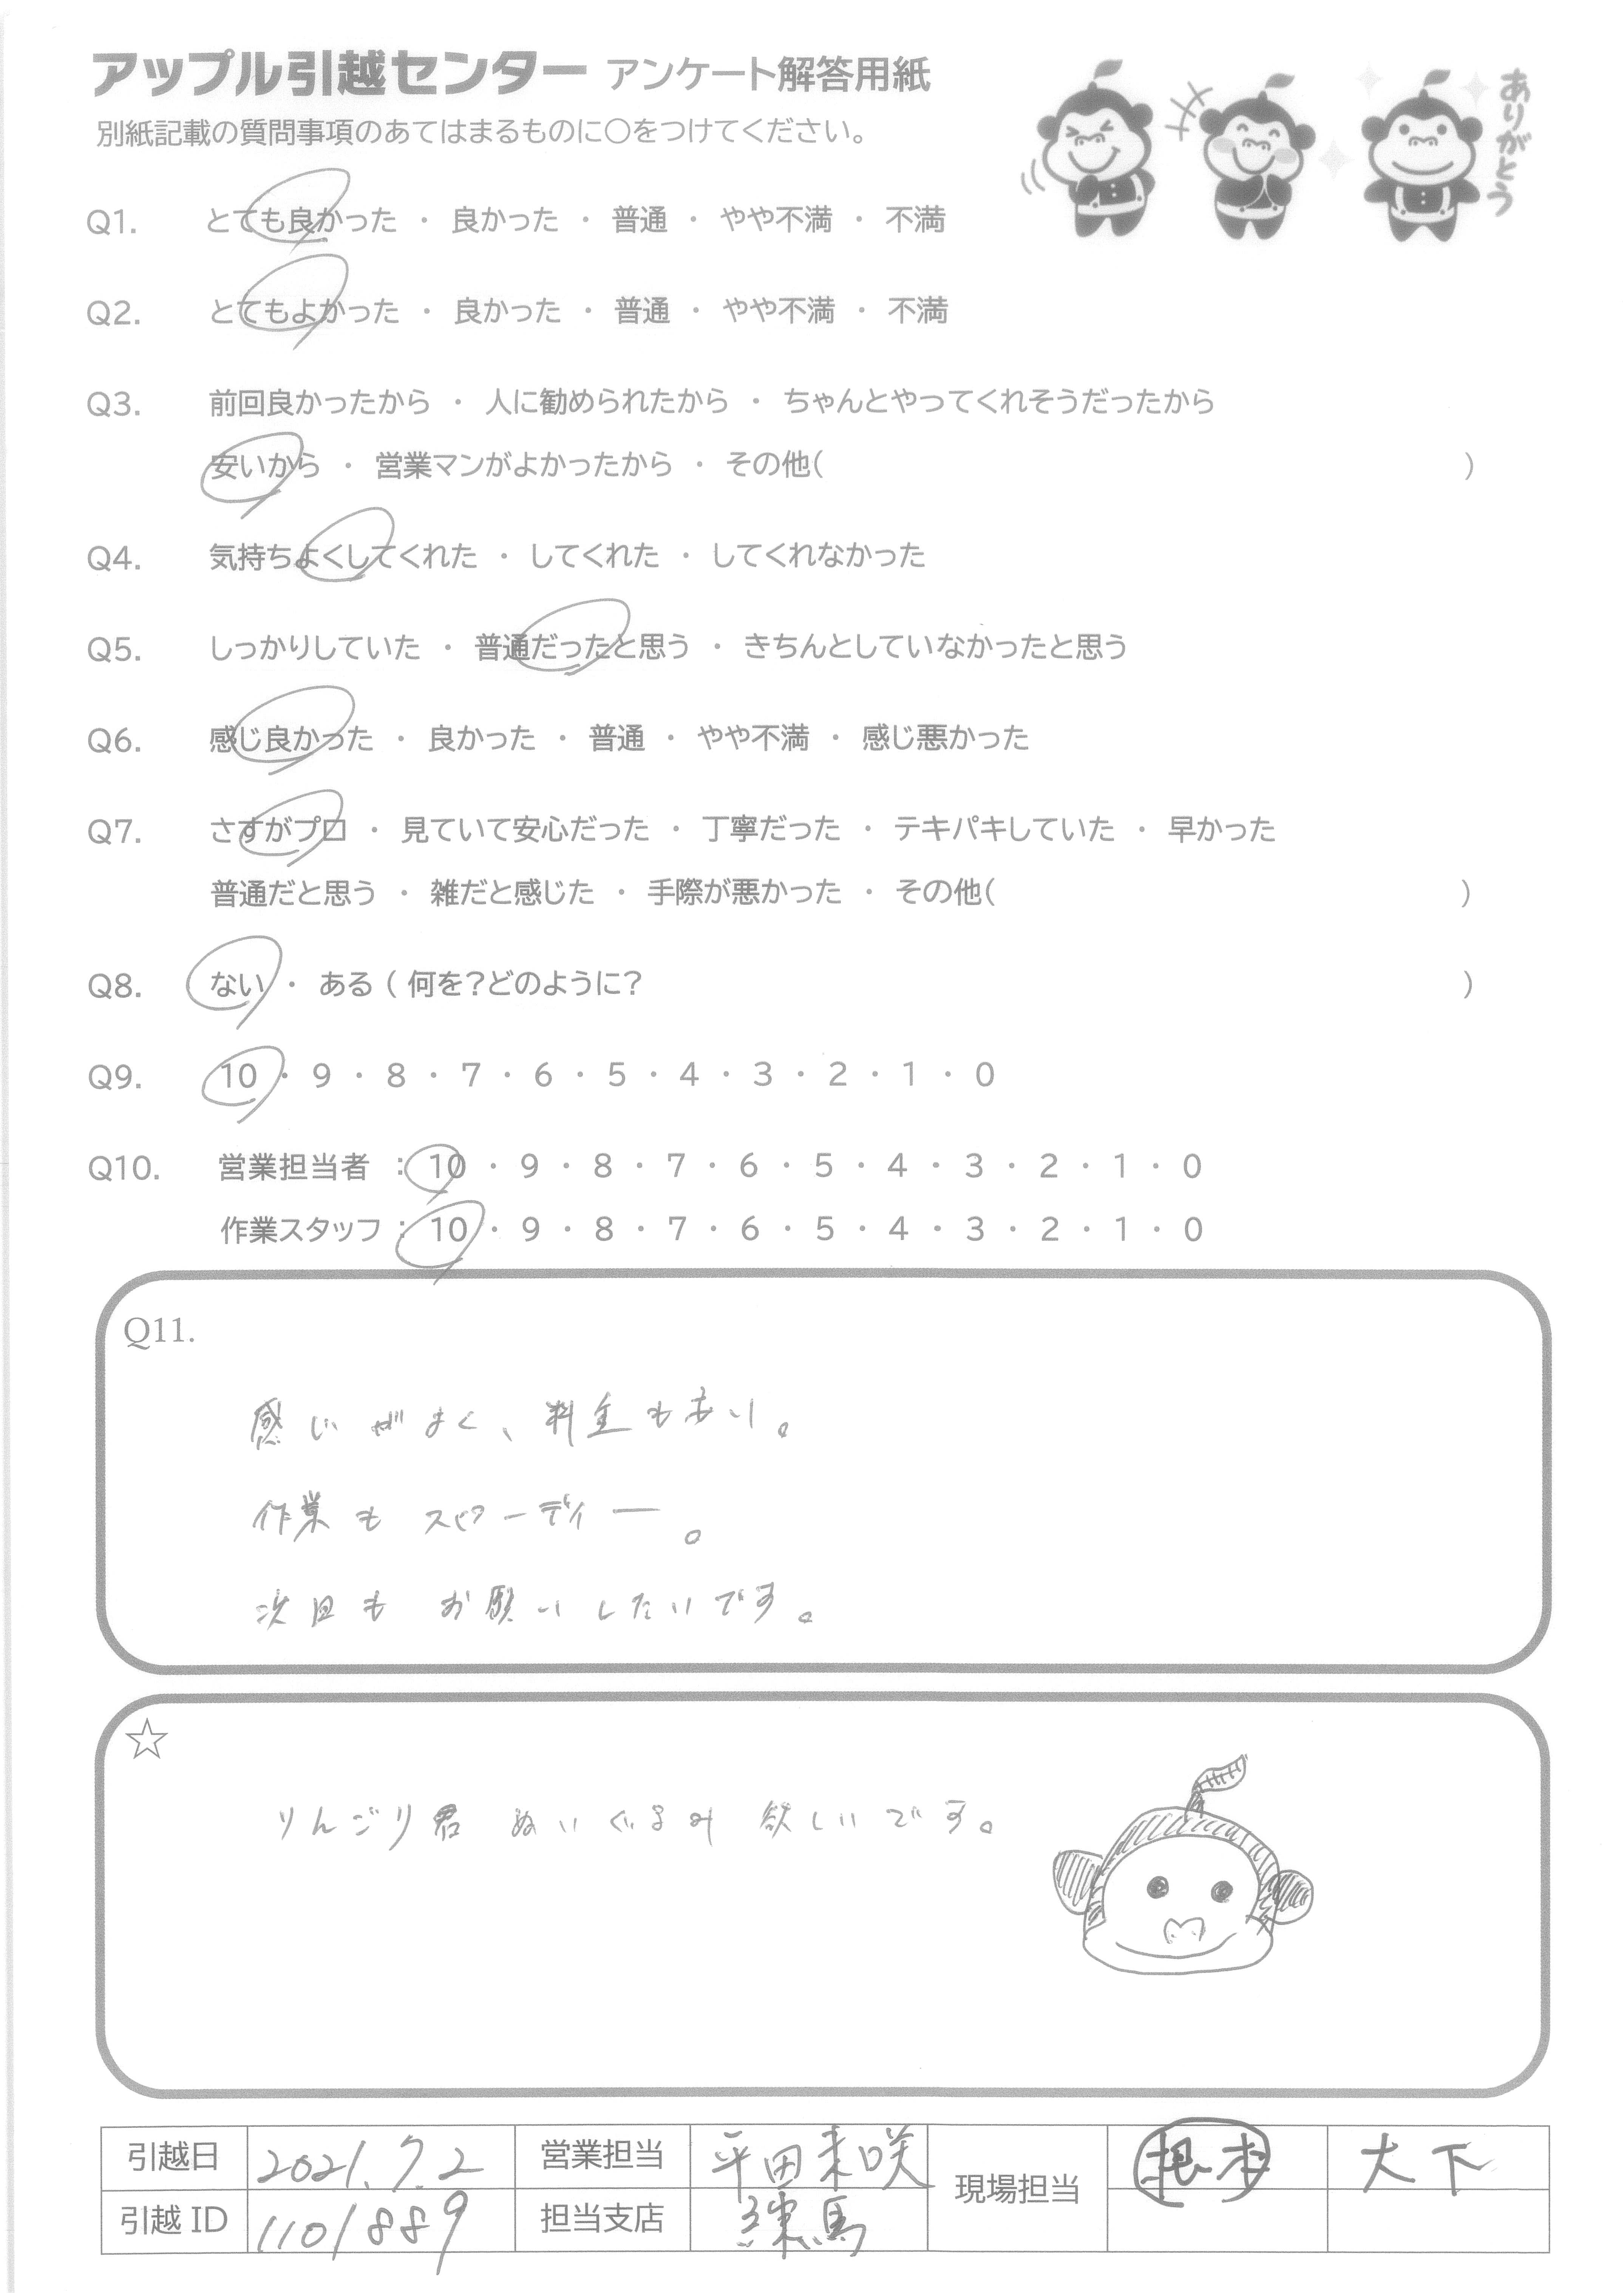 アップル引越センター アンケート解答用紙
ありがとう
別紙記載の質問事項のあてはまるものに○をつけてください。
Q1. とても良かった ・ 良かった ・ 普通 ・ やや不満 ・ 不満
Q2. とてもよかった ・ 良かった ・ 普通 ・ やや不満 ・ 不満
Q3. 前回良かったから ・ 人に勧められたから ・ ちゃんとやってくれそうだったから
安いから ・ 営業マンがよかったから ・ その他( )
Q4. 気持ちよくしてくれた ・ してくれた ・ してくれなかった
Q5. しっかりしていた ・ 普通だったと思う ・ きちんとしていなかったと思う
Q6. 感じ良かった ・ 良かった ・ 普通 ・ やや不満 ・ 感じ悪かった
Q7. さすがプロ ・ 見ていて安心だった ・ 丁寧だった ・ テキパキしていた ・ 早かった
普通だと思う ・ 雑だと感じた ・ 手際が悪かった ・ その他( )
Q8. ない ・ ある ( 何を?どのように? )
Q9. 10 ・ 9 ・ 8 ・ 7 ・ 6 ・ 5 ・ 4 ・ 3 ・ 2 ・ 1 ・ 0
Q10. 営業担当者 : 10 ・ 9 ・ 8 ・ 7 ・ 6 ・ 5 ・ 4 ・ 3 ・ 2 ・ 1 ・ 0
作業スタッフ : 10 ・ 9 ・ 8 ・ 7 ・ 6 ・ 5 ・ 4 ・ 3 ・ 2 ・ 1 ・ 0
Q11.
感じがよく、料金も安い。
作業もスピーディー。
次回もお願いしたいです。
☆
りんごり君 ぬいぐるみ 欲しいです。
引越日 2021.7.2 営業担当 平田未咲 現場担当 根本 大下
引越 ID 1101889 担当支店 練馬